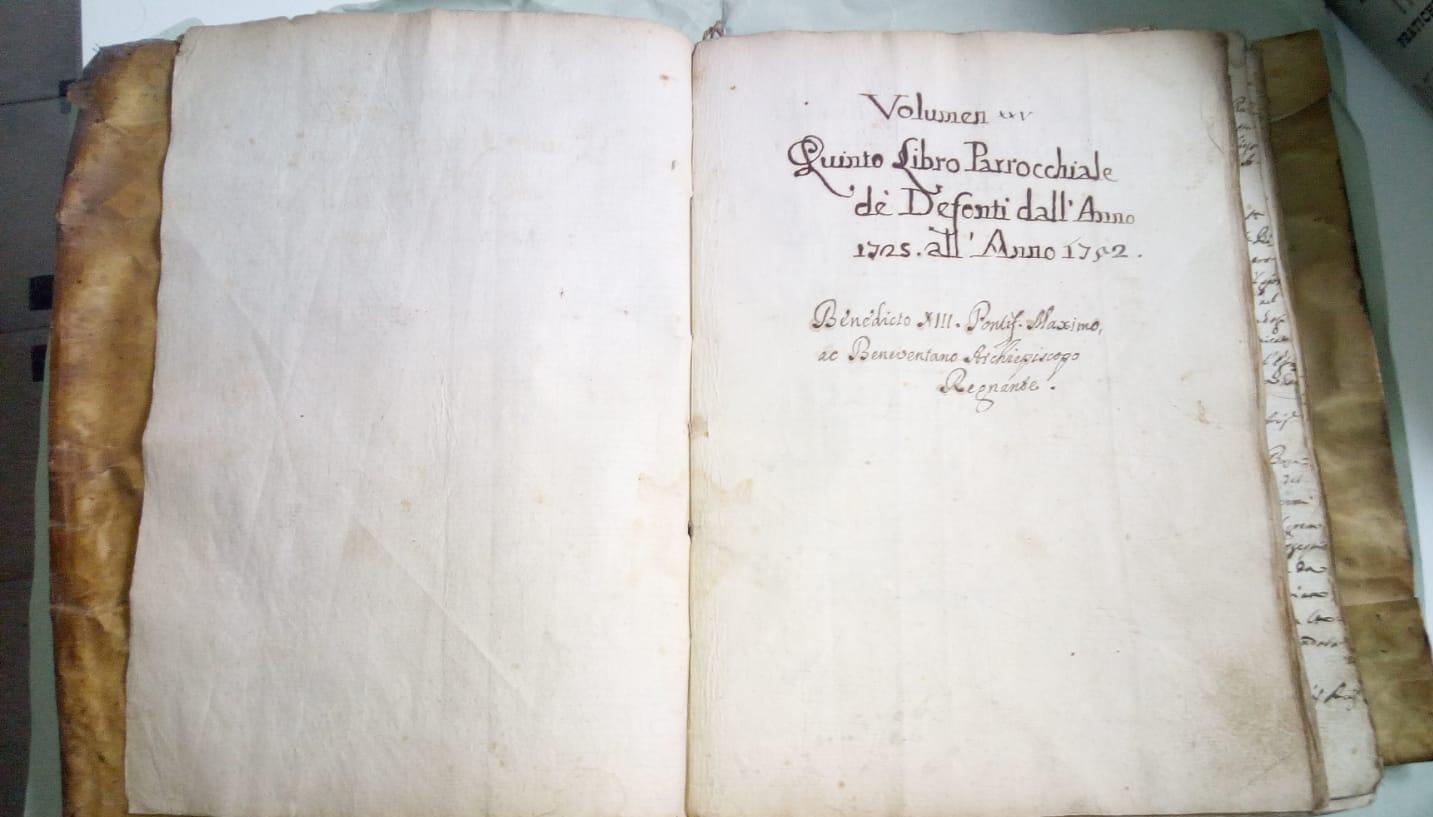 Volumen xxv
Quinto Libro Parrocchiale
de' Defonti dall' Anno
1725. all' Anno 1752.
Benedicto XIII. Pontif. Maximo,
ac Beneventano Archiepiscopo
Regnante.